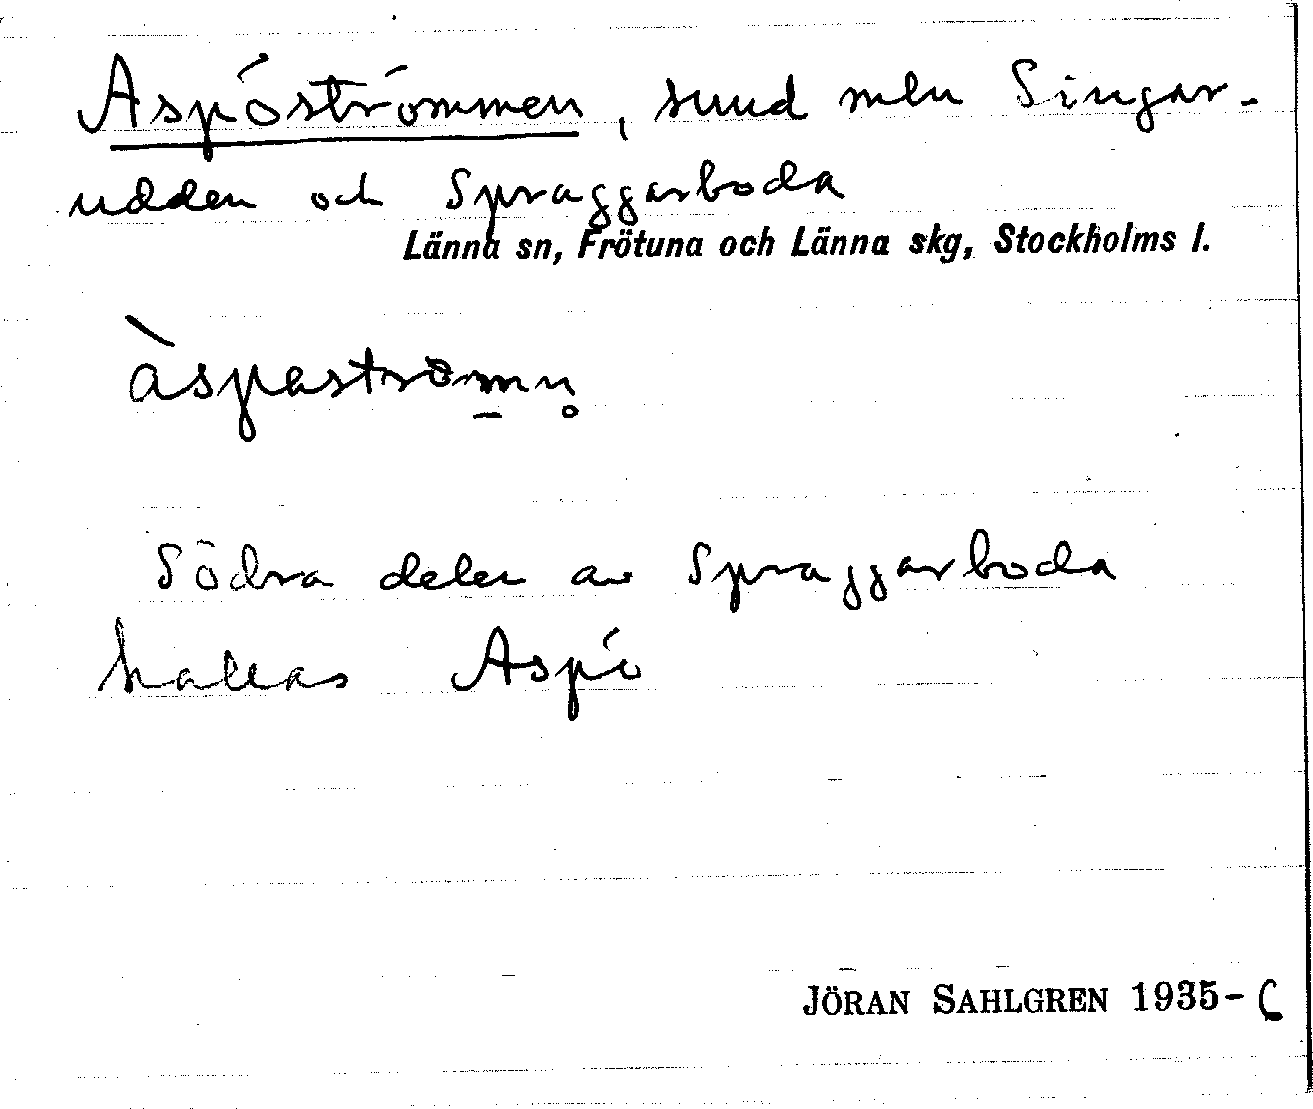 Aspöströmmen, sund mln Singar-
udden och Spraggarboda
Länna sn, Frötuna och Länna skg, Stockholms l.
àspaströmn̥
Södra delen av Spraggarboda
kallas Aspö
JÖRAN SAHLGREN 1935-